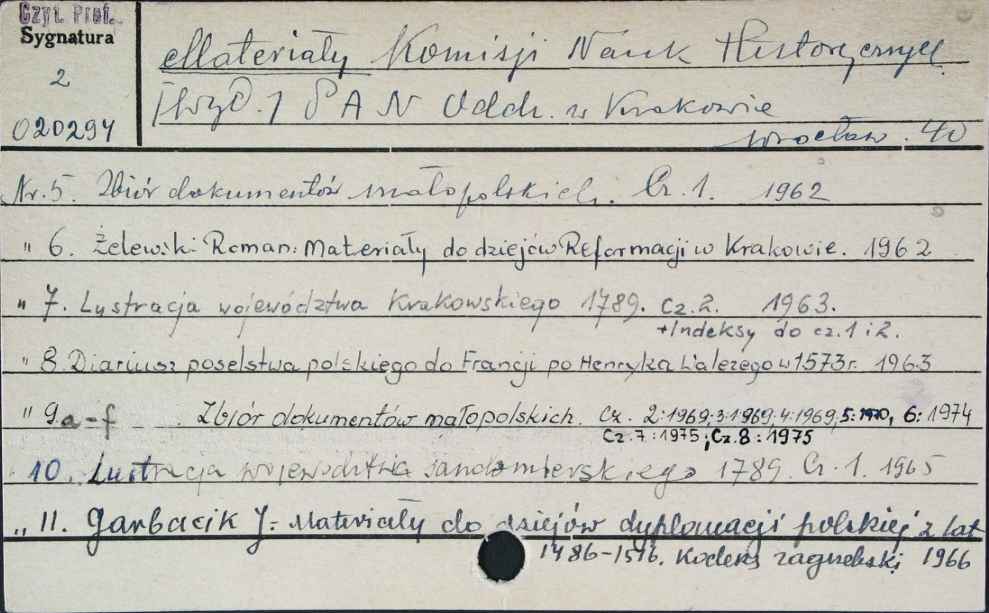 Czyt. Prof.
Sygnatura
2
020294
Materiały Komisji Nauk Historycznych
[Wyd.] PAN Oddz. w Krakowie
Wrocław. 40
Nr. 5. Zbiór dokumentów małopolskich. Cz. 1. 1962
" 6. Żelewski Roman: Materiały do dziejów Reformacji w Krakowie. 1962
" 7. Lustracja województwa Krakowskiego 1789. Cz. 2. 1963.
+Indeksy do cz. 1 i 2.
" 8. Diariusz poselstwa polskiego do Francji po Henryka Walezego w 1573 r. 1963
" 9a-f Zbiór dokumentów małopolskich. Cz. 2:1969; 3:1969; 4:1969; 5:1970, 6:1974
Cz. 7:1975; Cz. 8:1975
10. Lustracja województwa sandomierskiego 1789. Cz. 1. 1965
" 11. Garbacik J. Materiały do dziejów dyplomacji polskiej z lat
1486-1516. Kodeks zagrzebski 1966